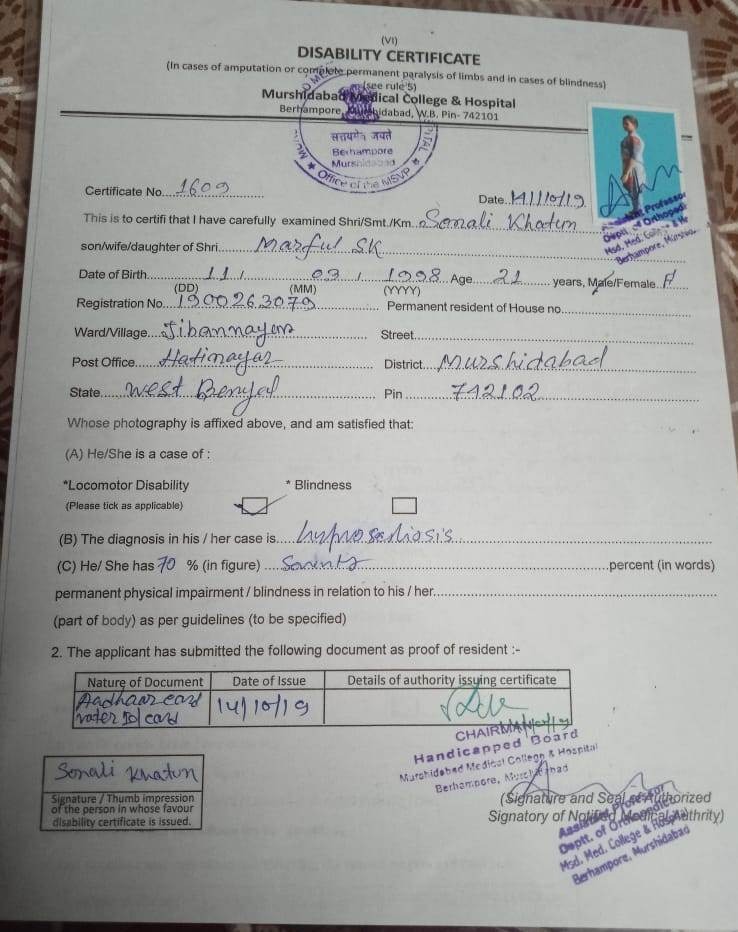 (VI)
DISABILITY CERTIFICATE
(In cases of amputation or complete permanent paralysis of limbs and in cases of blindness)
(see rule 5)
Murshidabad Medical College & Hospital
Berhampore, Murshidabad, W.B. Pin- 742101
सत्यमेव जयते
Berhampore
Murshidabad
Office of the MSVP
Certificate No. 1609
Date. 14/10/19
Assistant Professor
Deptt. of Orthopedic
Msd. Med. College & Hospital
Berhampore, Murshidabad
This is to certifi that I have carefully examined Shri/Smt./Km. Sonali Khatun
son/wife/daughter of Shri. Marful SK
Date of Birth 11 / 03 / 1998 Age 21 years, Male/Female. F
(DD) (MM) (YYYY)
Registration No. 190026 3079 Permanent resident of House no.
Ward/Village. Street.
Post Office. District. Murshidabad
State. West Bengal Pin 742102
Whose photography is affixed above, and am satisfied that:
(A) He/She is a case of :
*Locomotor Disability * Blindness
(Please tick as applicable)
(B) The diagnosis in his / her case is.
(C) He/ She has 70 % (in figure) percent (in words)
permanent physical impairment / blindness in relation to his / her.
(part of body) as per guidelines (to be specified)
2. The applicant has submitted the following document as proof of resident :-
Nature of Document Date of Issue Details of authority issying certificate
Aadhaar card 14/10/19
voter ID card
CHAIRMAN
Handicapped Board
Murshidabad Medical College & Hospital
Berhampore, Murshidabad
Sonali Khatun
Signature / Thumb impression
of the person in whose favour
disability certificate is issued.
(Signature and Seal of Authorized
Signatory of Notified Medical Authrity)
Assistant Professor
Deptt. of Orthopedic
Msd. Med. College & Hospital
Berhampore, Murshidabad